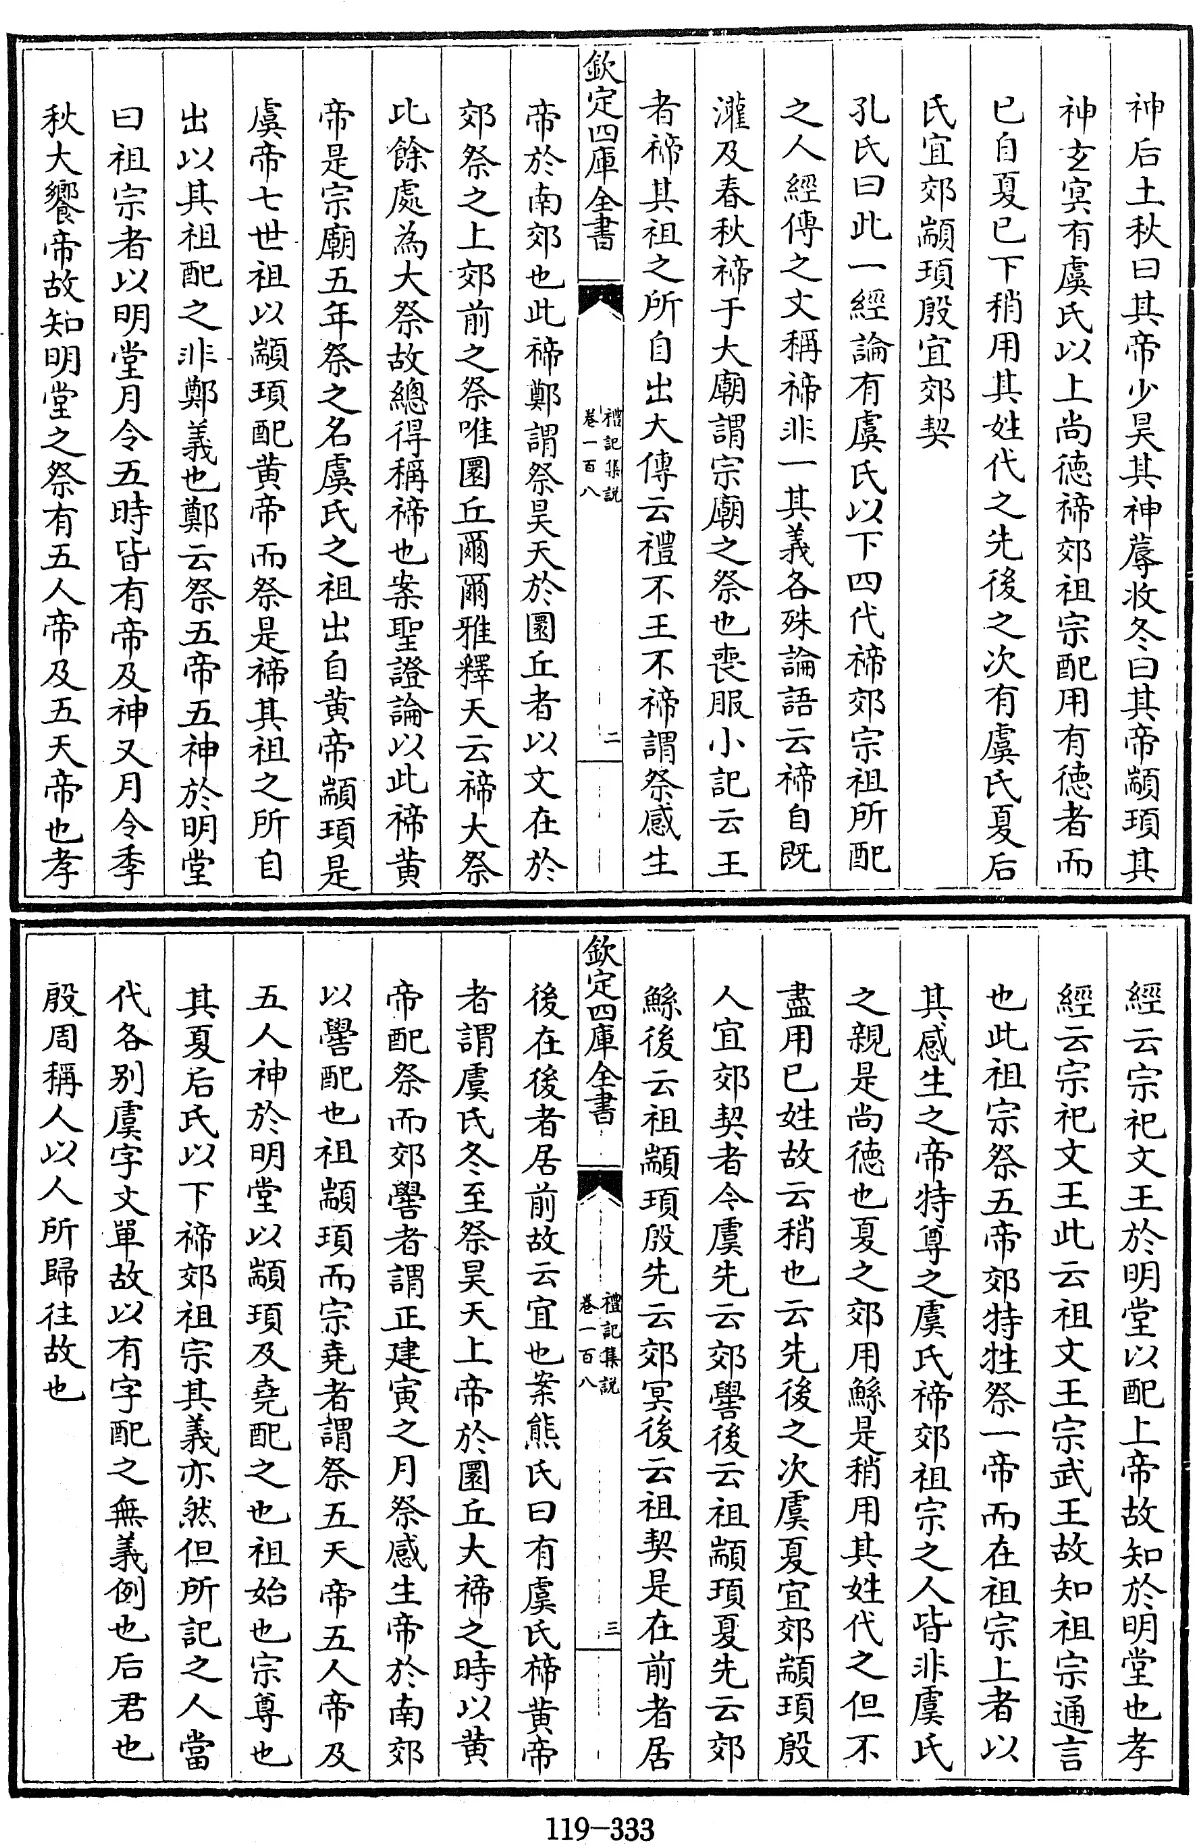 神后土秋曰其帝少昊其神蓐收冬曰其帝顓頊其
神玄冥有虞氏以上尚徳禘郊祖宗配用有徳者而
已自夏已下稍用其姓代之先後之次有虞氏夏后
氏宜郊顓頊殷宜郊契
孔氏曰此一經論有虞氏以下四代禘郊宗祖所配
之人經傳之文稱禘非一其義各殊論語云禘自既
灌及春秋禘于大廟謂宗廟之祭也喪服小記云王
者禘其祖之所自出大傳云禮不王不禘謂祭感生
欽定四庫全書
禮記集説
卷一百八
二
帝於南郊也此禘鄭謂祭昊天於圜丘者以文在於
郊祭之上郊前之祭唯圜丘爾爾雅釋天云禘大祭
比餘處為大祭故總得稱禘也案聖證論以此禘黄
帝是宗廟五年祭之名虞氏之祖出自黄帝顓頊是
虞帝七世祖以顓頊配黄帝而祭是禘其祖之所自
出以其祖配之非鄭義也鄭云祭五帝五神於明堂
曰祖宗者以明堂月令五時皆有帝及神又月令季
秋大饗帝故知明堂之祭有五人帝及五天帝也孝
經云宗祀文王於明堂以配上帝故知於明堂也孝
經云宗祀文王此云祖文王宗武王故知祖宗通言
也此祖宗祭五帝郊特牲祭一帝而在祖宗上者以
其感生之帝特尊之虞氏禘郊祖宗之人皆非虞氏
之親是尚徳也夏之郊用鯀是稍用其姓代之但不
盡用已姓故云稍也云先後之次虞夏宜郊顓頊殷
人宜郊契者今虞先云郊嚳後云祖顓頊夏先云郊
鯀後云祖顓頊殷先云郊冥後云祖契是在前者居
欽定四庫全書
禮記集説
卷一百八
三
後在後者居前故云宜也案熊氏曰有虞氏禘黄帝
者謂虞氏冬至祭昊天上帝於圜丘大禘之時以黄
帝配祭而郊嚳者謂正建寅之月祭感生帝於南郊
以嚳配也祖顓頊而宗堯者謂祭五天帝五人帝及
五人神於明堂以顓頊及堯配之也祖始也宗尊也
其夏后氏以下禘郊祖宗其義亦然但所記之人當
代各别虞字文單故以有字配之無義例也后君也
殷周稱人以人所歸往故也
119-333